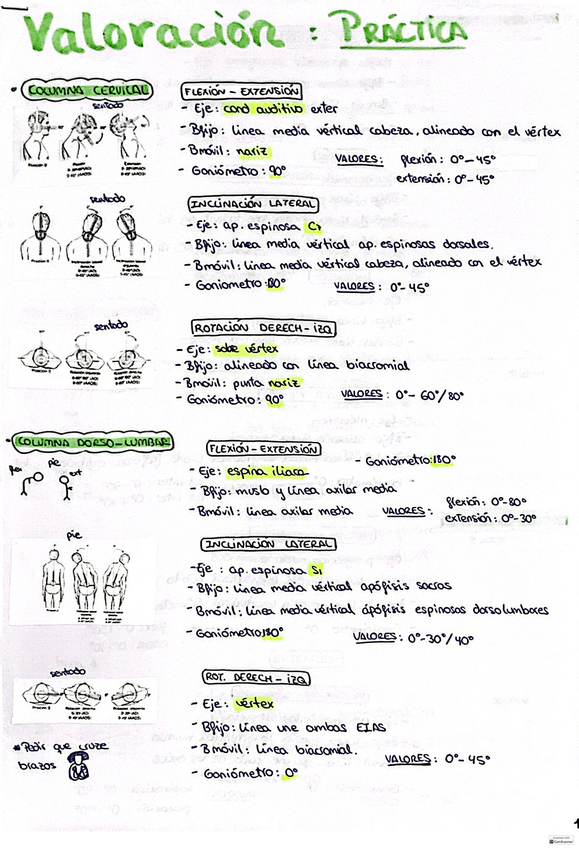 Valoración : PRÁCTICA
• COLUMNA CERVICAL
sentado
FLEXIÓN - EXTENSIÓN
- Eje: cond auditivo exter
- Bfijo: línea media vértical cabeza, alineado con el vértex
- Bmóvil: nariz
- Goniómetro: 90°
VALORES: flexión: 0°-45°
extensión: 0°-45°
sentado
INCLINACIÓN LATERAL
- Eje: ap. espinosa C7
- Bfijo: línea media vértical ap. espinosas dorsales.
- Bmóvil: línea media vértical cabeza, alineado con el vértex
- Goniometro: 180°
VALORES: 0°-45°
sentado
ROTACIÓN DERECH-IZQ
- Eje: sobre vértex
- Bfijo: alineado con línea biacromial
- Bmóvil: punta nariz
- Goniómetro: 90°
VALORES: 0°- 60°/80°
• COLUMNA DORSO-LUMBAR
flex
pie
ext
FLEXIÓN-EXTENSIÓN
- Goniómetro: 180°
- Eje: espina iliaca
- Bfijo: muslo y línea axilar media
- Bmóvil: línea axilar media
VALORES: flexión: 0°-80°
extensión: 0°-30°
pie
INCLINACIÓN LATERAL
- Eje : ap. espinosa S1
- Bfijo: línea media vértical apófisis sacras
- Bmóvil: línea media vértical apófisis espinosas dorsolumbares
- Goniómetro: 180°
VALORES: 0°-30°/40°
sentado
ROT. DERECH - IZQ
- Eje: vértex
- Bfijo: línea une ambas EIAS
- Bmóvil: línea biacromial.
- Goniómetro: 0°
VALORES: 0°- 45°
* Pedir que cruze
brazos
1
CamScanner